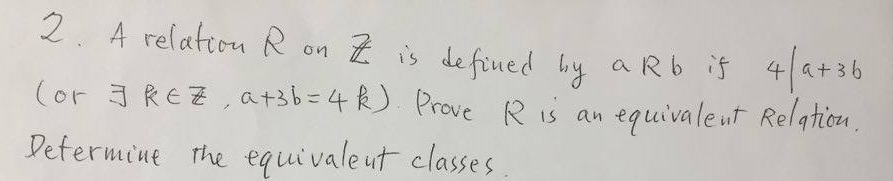 2. A relation R on ℤ is defined by a R b if 4|a+3b
(or ∃ k∈ℤ, a+3b=4k). Prove R is an equivalent Relation.
Determine the equivalent classes.